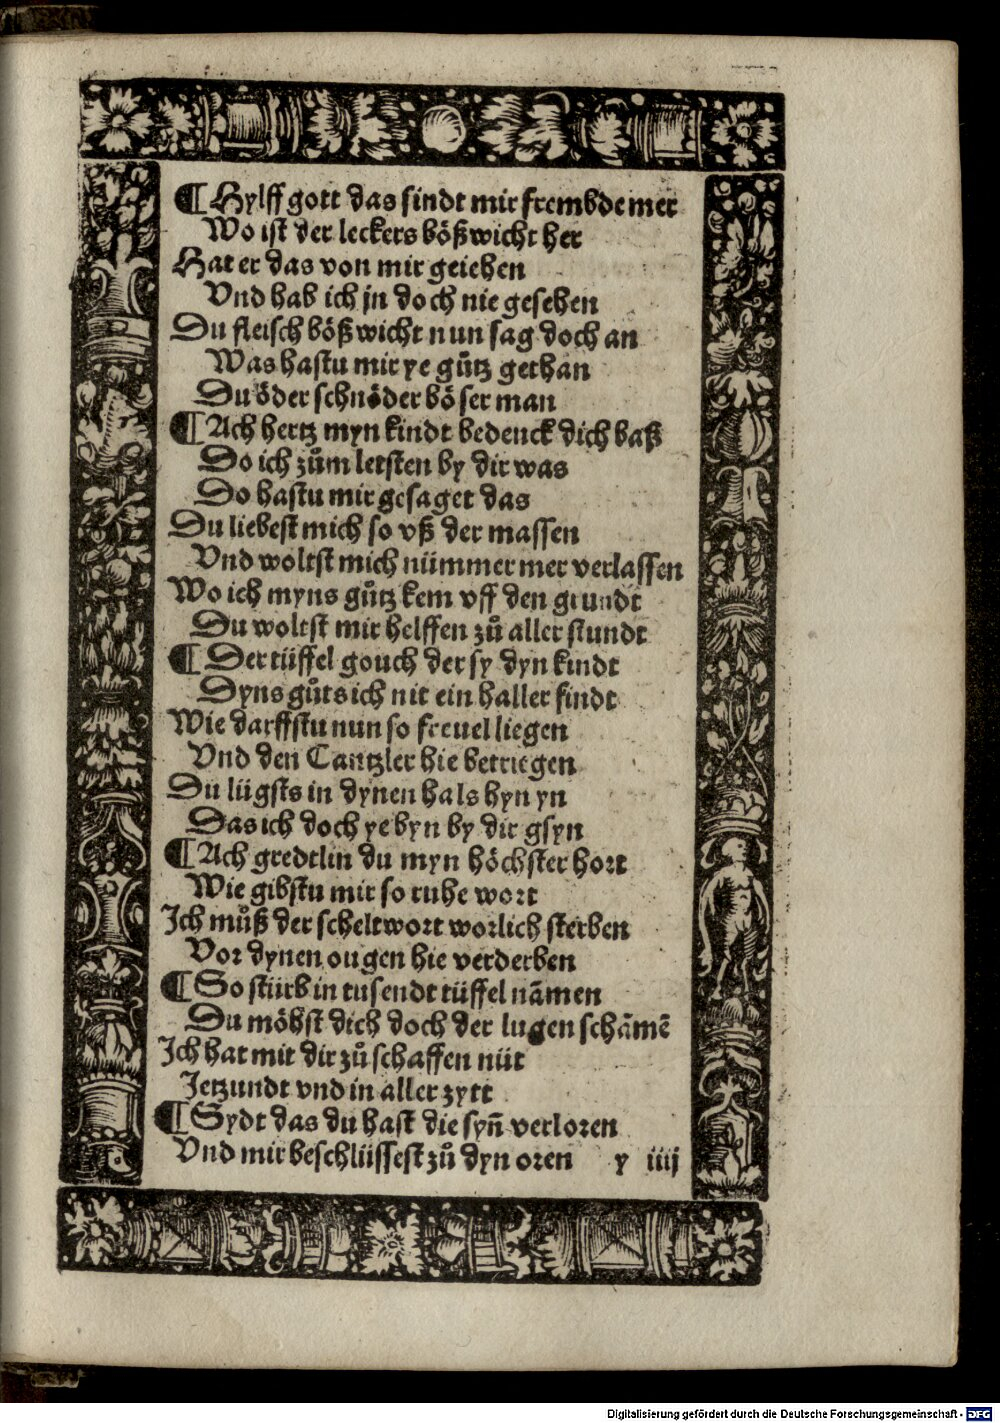 ¶ Hylff gott das sindt mir frembde mer
Wo ist der leckers bößwicht her
Hat er das von mir geiehen
Vnd hab ich jn doch nie gesehen
Du fleisch bößwicht nun sag doch an
Was hastu mir ye gůtz gethan
Du öder schnöder böser man
¶ Ach hertz myn kindt bedenck dich baß
Do ich zům letsten by dir was
Do hastu mir gesaget das
Du liebest mich so vß der massen
Vnd woltst mich nümmer mer verlassen
Wo ich myns gůtz kem vff den grundt
Du woltst mir helffen zů aller stundt
¶ Der tüffel gouch der sy dyn kindt
Dyns gůts ich nit ein haller findt
Wie darffstu nun so freuel liegen
Vnd den Cantzler hie betriegen
Du lügsts in dynen hals hyn yn
Das ich doch ye byn by dir gsyn
¶ Ach gredtlin du myn höchster hort
Wie gibstu mir so ruhe wort
Ich můß der scheltwort worlich sterben
Vor dynen ougen hie verderben
¶ So stürb in tusendt tüffel nãmen
Du möhst dich doch der lugen schãmẽ
Ich hat mit dir zů schaffen nüt
Jetzundt vnd in aller zytt
¶ Sydt das du hast die syñ verloren
Vnd mir beschlüssest zů dyn oren y iiij
Digitalisierung gefördert durch die Deutsche Forschungsgemeinschaft - DFG